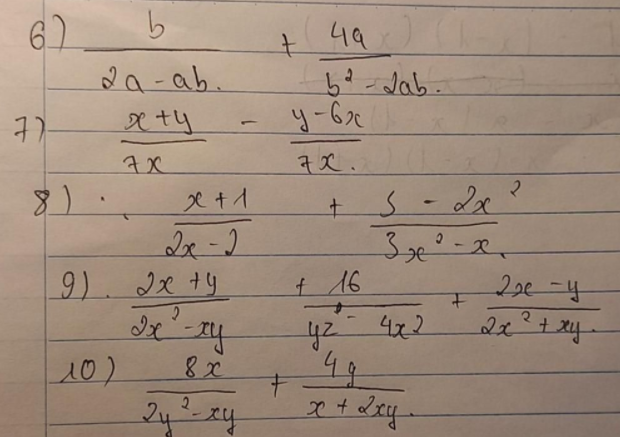 6) b/(2a - ab.) + 4a/(b² - 2ab.)
7) (x + y)/(7x) - (y - 6x)/(7x.)
8) (x + 1)/(2x - 2) + (5 - 2x²)/(3x² - x.)
9) (2x + y)/(2x² - xy) + 16/(yz - 4x2) + (2x - y)/(2x² + xy.)
10) 8x/(2y² - xy) + 4y/(x + 2xy.)